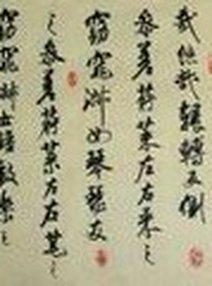 哉悠哉輾轉反側
參差荇菜左右采之
窈窕淑女琴瑟友
之參差荇菜左右芼之
窈窕淑女鐘鼓樂之